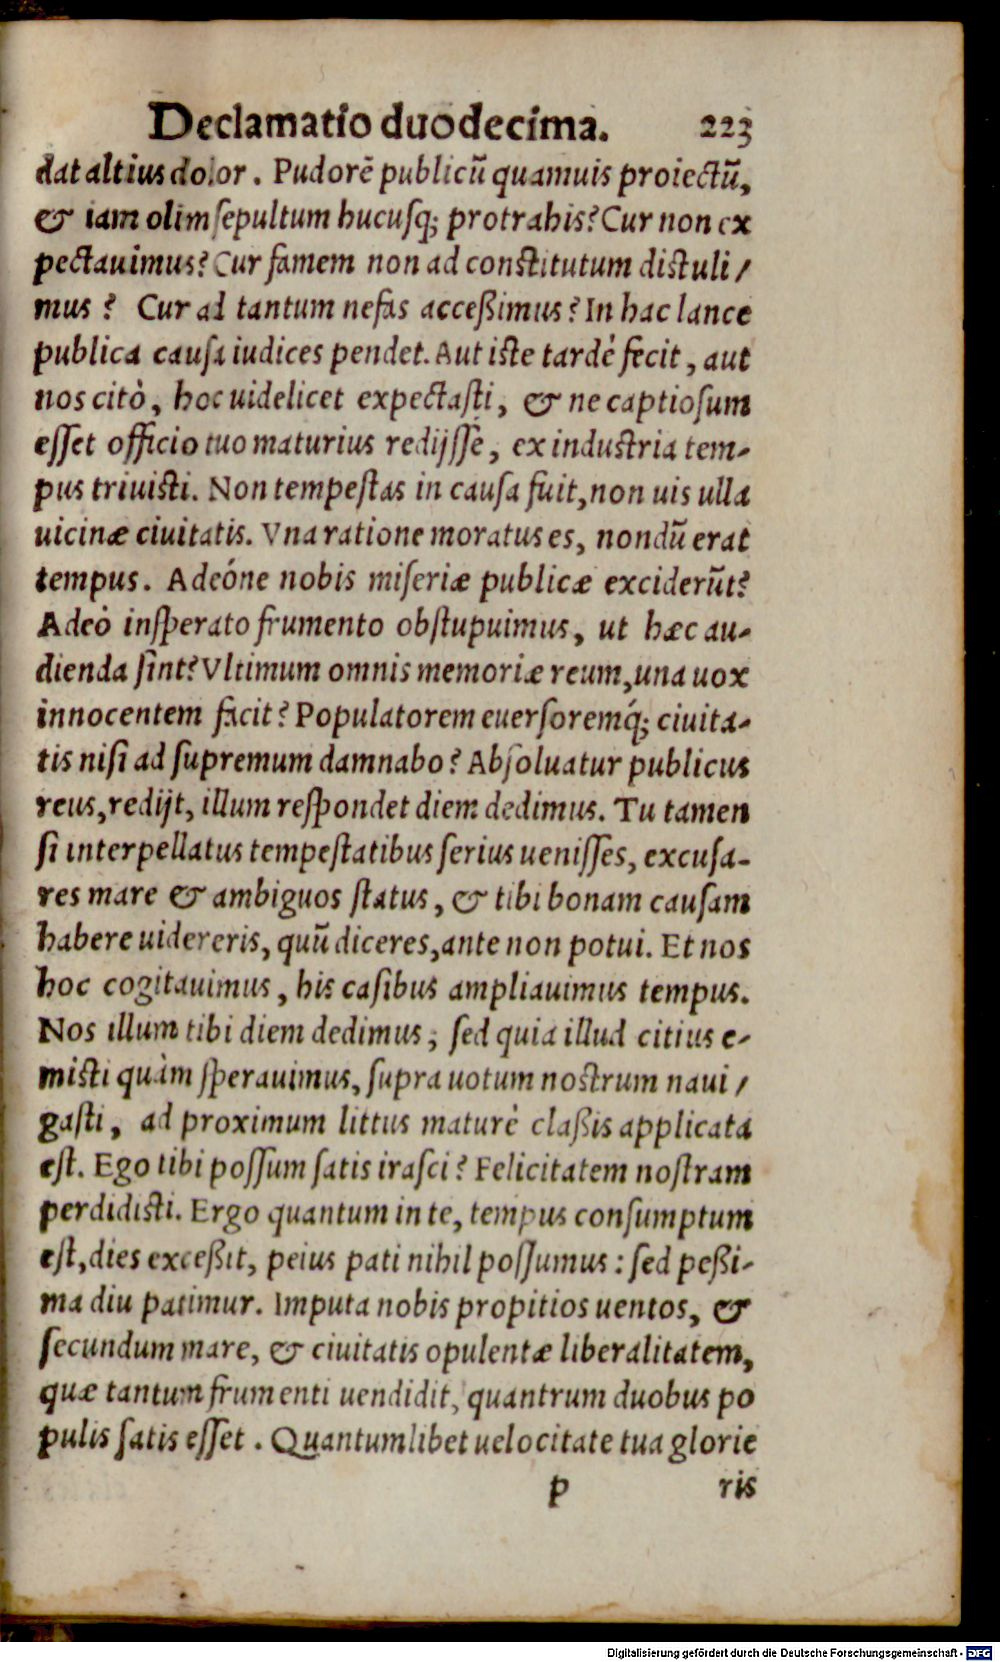 Declamatio duodecima. 223
dat altius dolor. Pudorē publicū quamuis proiectū,
& iam olim sepultum hucusq; protrahis? Cur non ex
pectauimus? Cur famem non ad constitutum distuli/
mus? Cur ad tantum nefas acceßimus? In hac lance
publica causa iudices pendet. Aut iste tardè fecit, aut
nos citò, hoc uidelicet expectasti, & ne captiosum
esset officio tuo maturius redijssè, ex industria tem-
pus triuisti. Non tempestas in causa fuit, non uis ulla
uicinæ ciuitatis. Vna ratione moratus es, nondū erat
tempus. Adeóne nobis miseriæ publicæ exciderūt?
Adeò insperato frumento obstupuimus, ut hæc au-
dienda sint? Vltimum omnis memoriæ reum, una uox
innocentem facit? Populatorem euersoremq́; ciuita-
tis nisi ad supremum damnabo? Absoluatur publicus
reus, redijt, illum respondet diem dedimus. Tu tamen
si interpellatus tempestatibus serius uenisses, excusa-
res mare & ambiguos status, & tibi bonam causam
habere uidereris, quū diceres, ante non potui. Et nos
hoc cogitauimus, his casibus ampliauimus tempus.
Nos illum tibi diem dedimus; sed quia illud citius e-
misti quàm sperauimus, supra uotum nostrum naui/
gasti, ad proximum littus maturè claßis applicata
est. Ego tibi possum satis irasci? Felicitatem nostram
perdidisti. Ergo quantum in te, tempus consumptum
est, dies exceßit, peius pati nihil possumus: sed peßi-
ma diu patimur. Imputa nobis propitios uentos, &
secundum mare, & ciuitatis opulentæ liberalitatem,
quæ tantum frumenti uendidit, quantrum duobus po
pulis satis esset. Quantumlibet uelocitate tua glorie
p ris
Digitalisierung gefördert durch die Deutsche Forschungsgemeinschaft - DFG